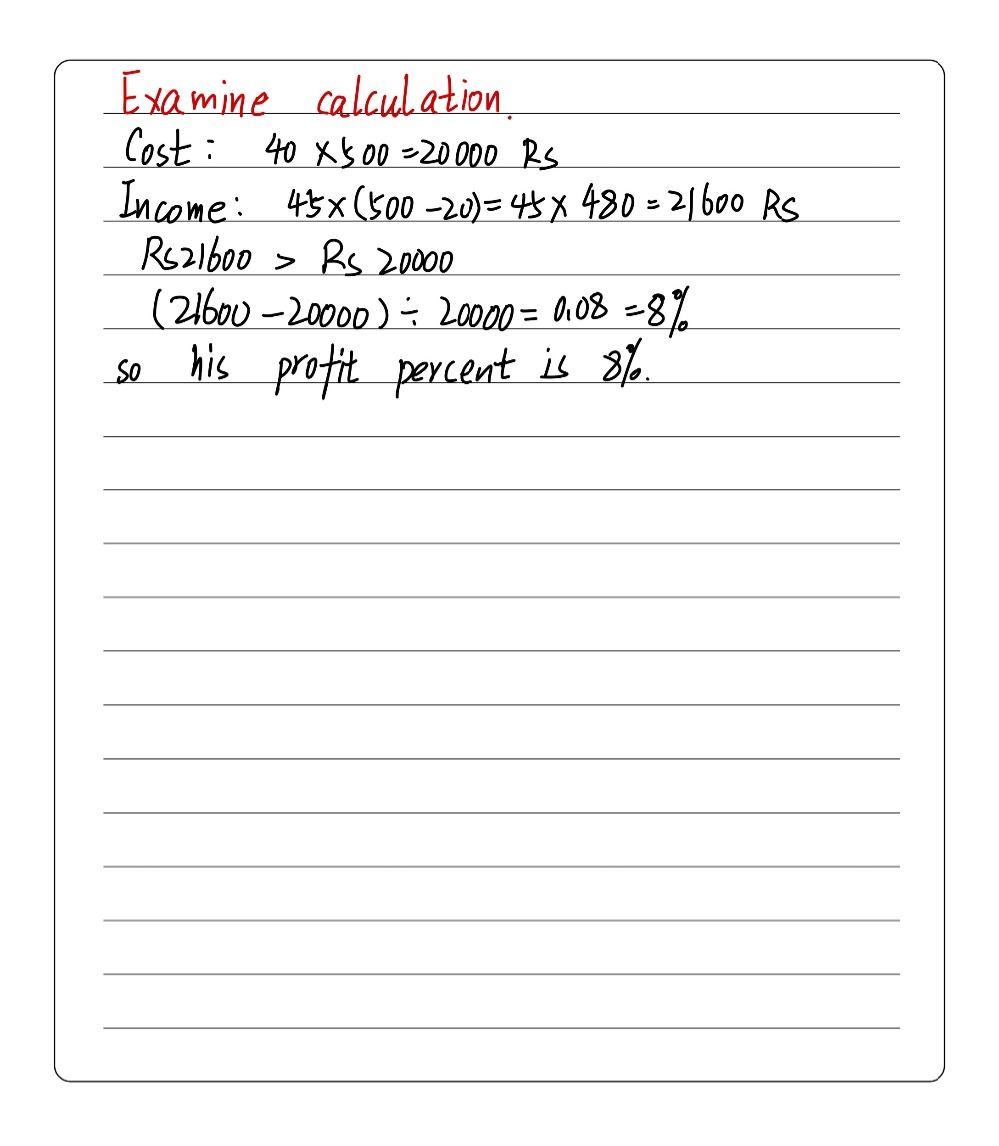 Examine calculation.
Cost: 40 ×500 =20000 Rs
Income: 45×(500 -20)=45× 480 = 21600 Rs
Rs21600 > Rs 20000
(21600 -20000) ÷ 20000 = 0.08 =8%
so his profit percent is 8%.